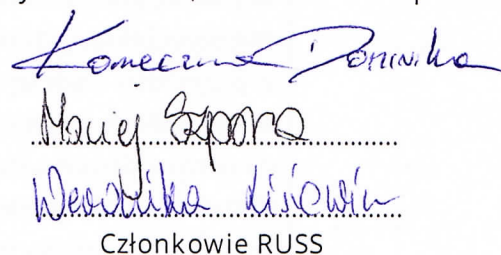 Konieczna Dominika
Maciej Szpora
Weronika
Członkowie RUSS